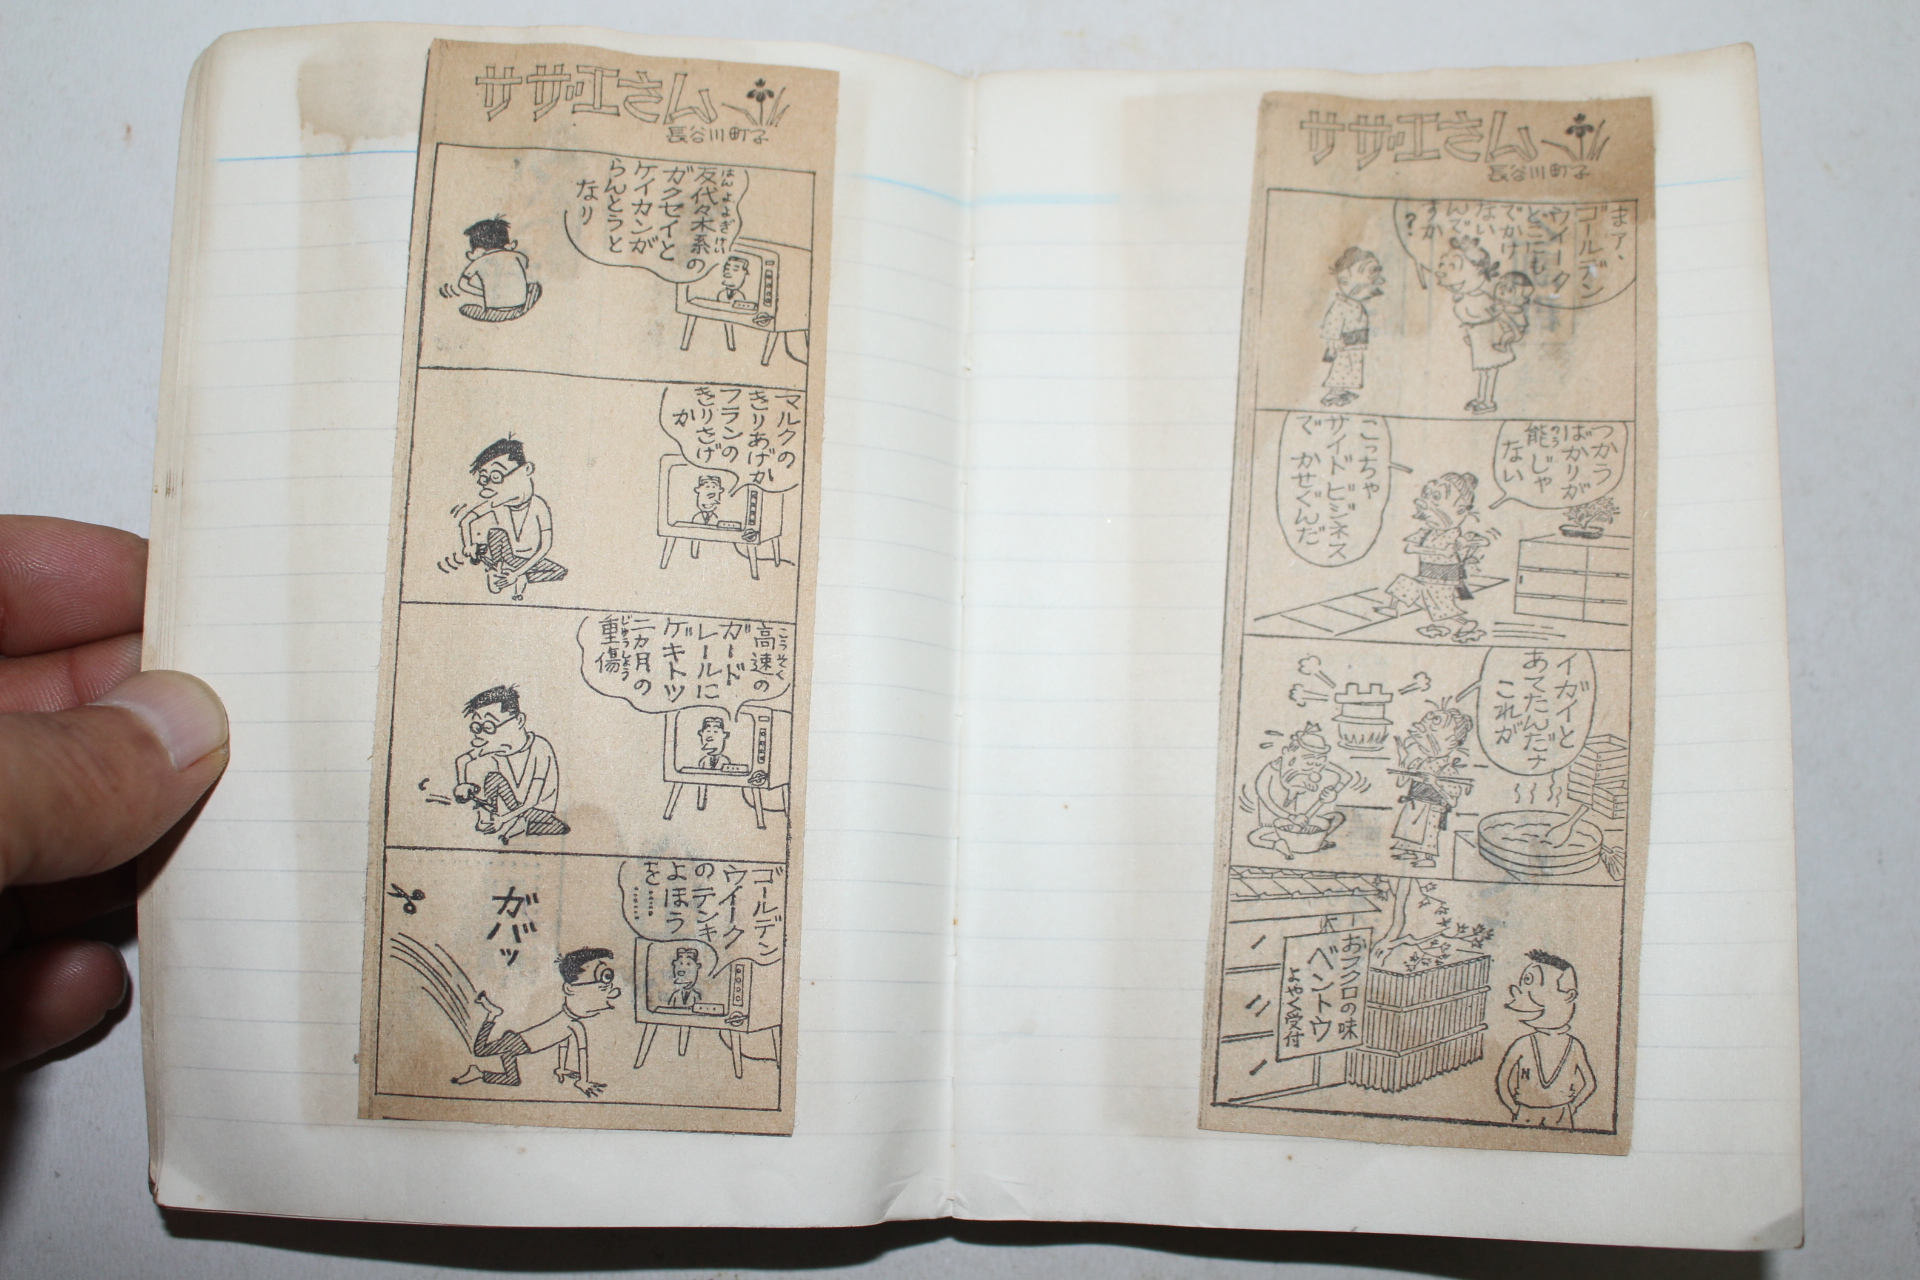 サザエさん
長谷川町子
反代々木系の
はんよよぎけい
ガクセイと
ケイカンが
らんとうと
なり
マルクの
きりあげか
フランの
きりさげ
か
高速の
こうそく
ガード
レールに
ゲキトツ
二カ月の
重傷
じゅうしょう
ゴールデン
ウイーク
のテンキ
よほう
を……
ガバッ
サザエさん
長谷川町子
まァ、
ゴールデン
ウイーク
どこにも
でかけ
ない
んで
すか
?
つかう
ばかりが
能じゃ
のう
ない
こっちゃ
サイドビジネス
で かせぐんだ
イガイと
あてたんだナ
これが
おフクロの味
ベントウ
よやく受付
N